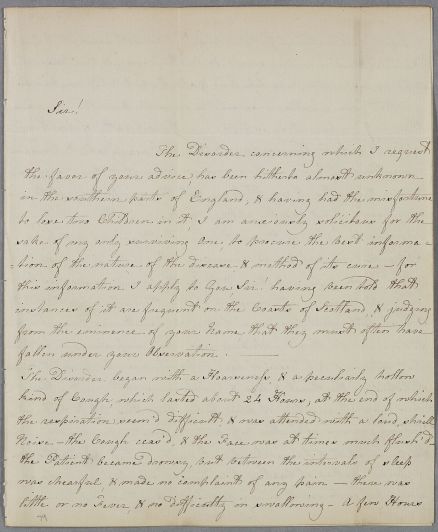 Sir!
The Disorder concerning which I request
the favor of your advice, has been hitherto almost unknown
in the southern parts of England, & having had the misfortune
to lose two Children in it, I am anxiously solicitous for the
sake of my only surviving One, to procure the best informa-
-tion of the nature of the disease & method of its cure – for
this information I apply to You Sir! having been told that
instances of it are frequent on the Coasts of Scotland, & judging
from the eminence of your Name that they must often have
fallen under your Observation. –
The Disorder began with a Hoarseness & a peculiarly hollow
kind of Cough, which lasted about 24 Hours, at the end of which
the respiration seem'd difficult, & was attended with a loud, shrill
Noise – the Cough ceas'd, & the Face was at times much flush'd –
the Patient became drowsy, but between the intervals of sleep
was chearful & made no complaint of any pain – there was
little or no Fever, & no difficulty in swallowing – A few Hours